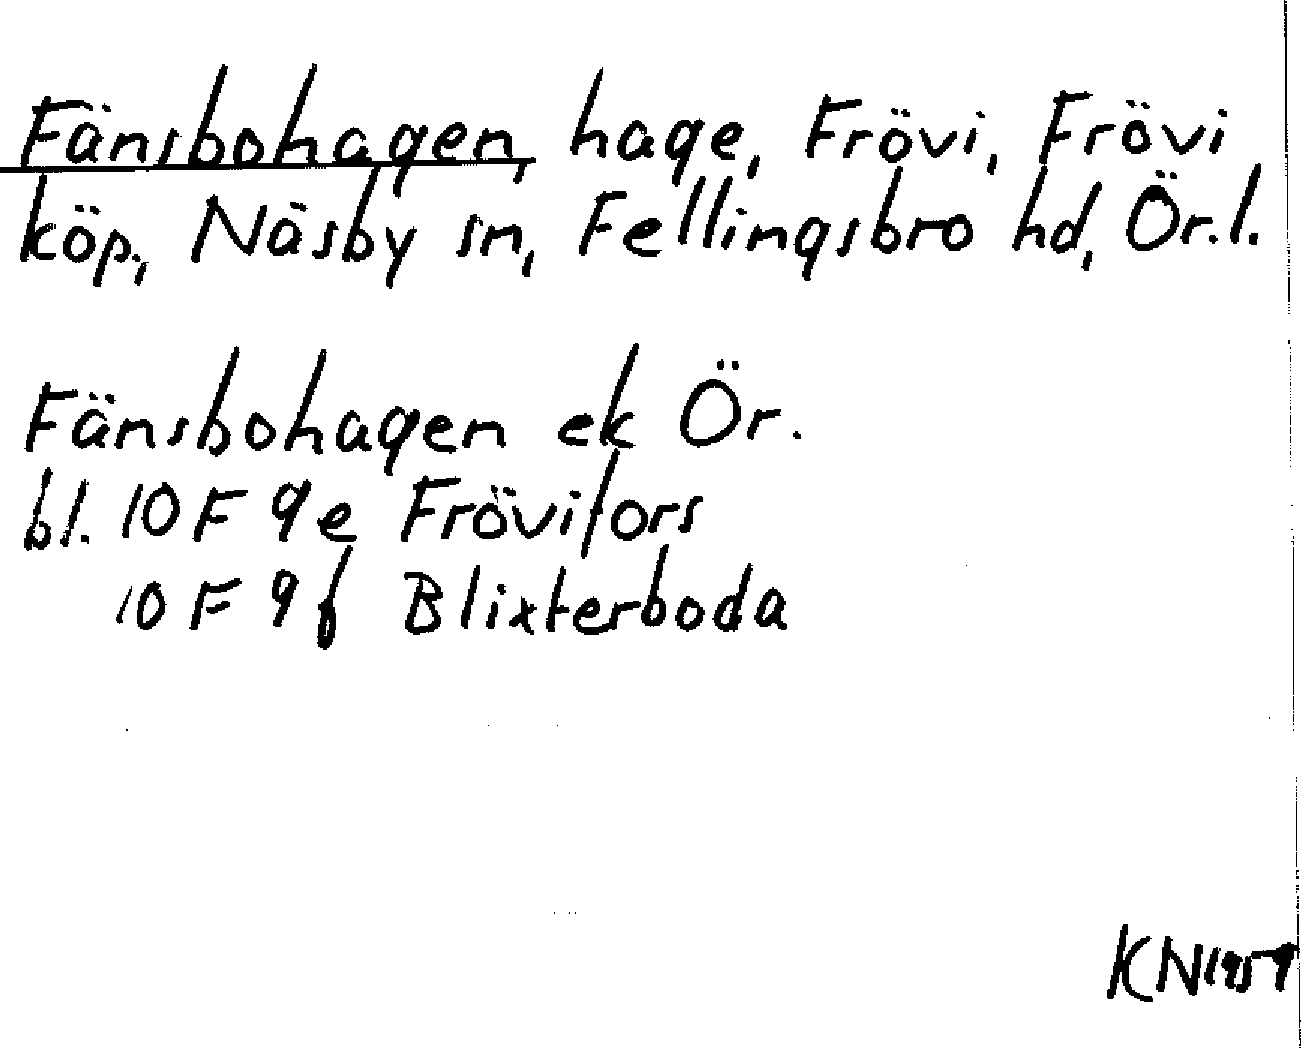 Fänsbohagen, hage, Frövi, Frövi
köp., Näsby sn, Fellingsbro hd, Ör.l.
Fänsbohagen ek Ör.
bl. 10 F 9e Frövifors
10 F 9f Blixterboda
KN 1959